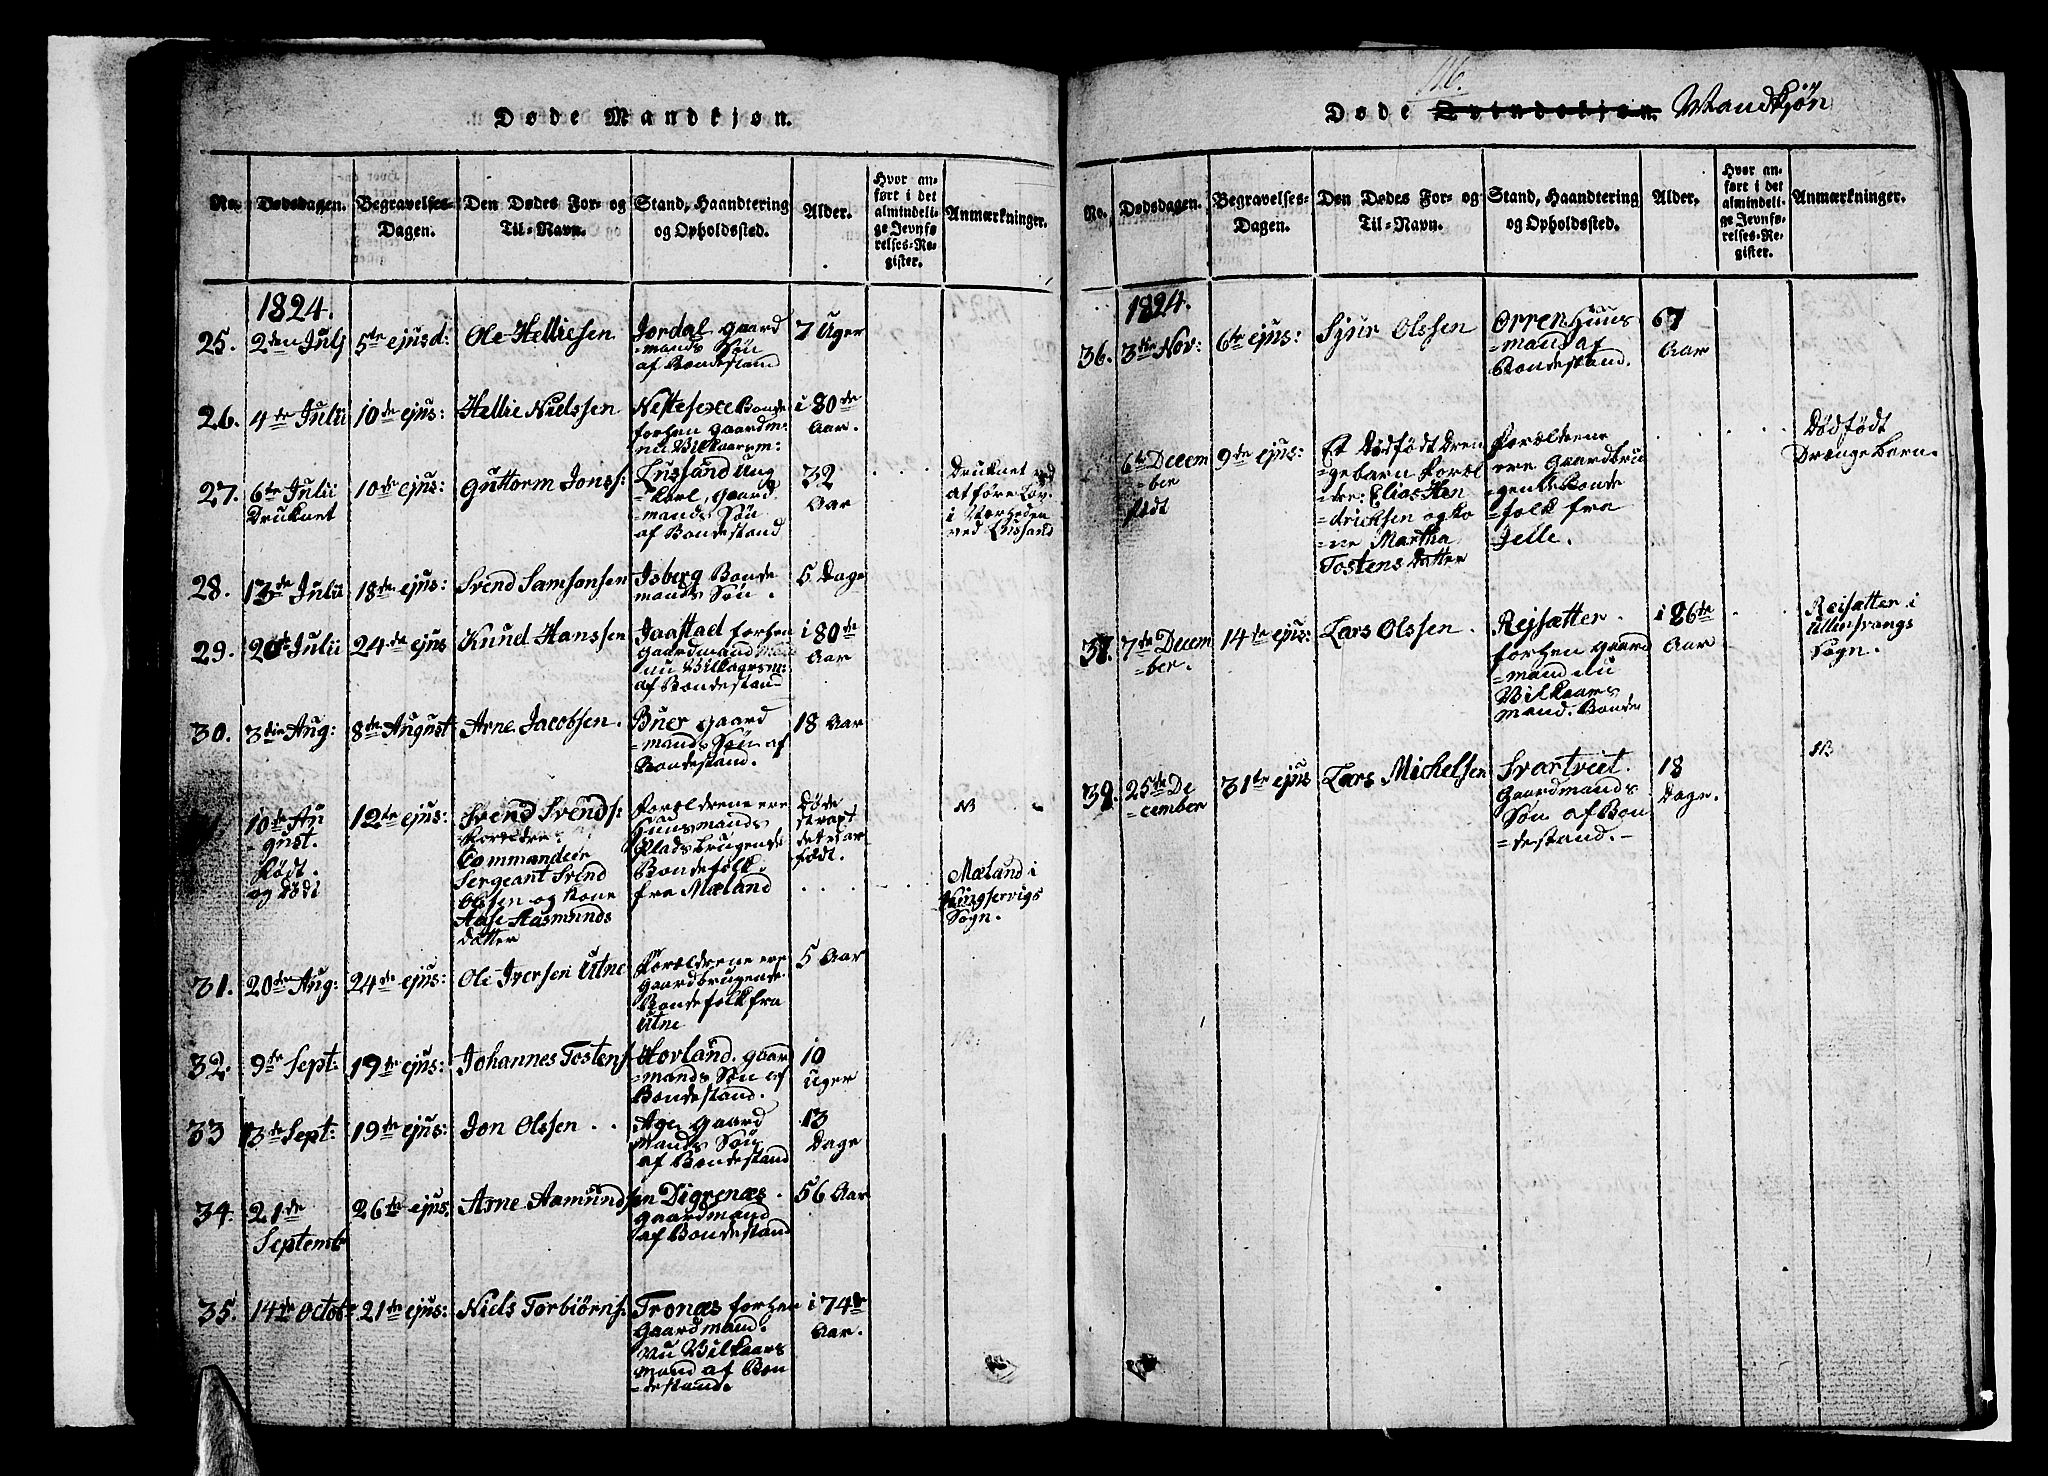 Døde Mandkjøn.
No.
Dødsdagen.
Begravelses-
Dagen.
Den Dødes For- og
Til-Navn.
Stand, Haandtering
og Opholdssted.
Alder.
Hvor an-
ført i det
almindeli-
ge Jevnfø-
relses-Re-
gister.
Anmærkninger.
1824.
25. 2den Julj 5te ejusd: Ole Helliesen
Jordal gaard
=mands Søn
af Bondestand
7 Uger
26. 4te Julii 10de ejus: Hellie Nielssen
Nestesexe Bonde
forhen gaardm:
nu Vilkaarsm:
i 80de
Aar.
27. 6te Julii
Druknet
10de ejus: Guttorm Jonss:
Lussand Ung
=karl, gaard
=mands Søn
af Bondestand
32
Aar
Druknet ved
at føre Løv
ved Lussand
28. 13de Julii 18de ejus: Svend Samsonsen
Isberg Bonde
mands Søn.
5 Dage
29. 20de Julii 24de ejus Knud Hanssen
Jaastad forhen
gaardmand
nu Vilkaarsm:
af Bondestand
i 80de
Aar
30. 3die Aug: 8de August Arne Jacobsen.
Buer gaard
=mands Søn af
Bondestand.
18 Aar
10de Au
=gust.
født.
og død
12te ejus: Svend Svends:
Forældre:
Commandeer
Sergeant Svend
Olssen og Kone
Aase Aasmunds
datter
Forældrene ere
Huusmands
Pladsbrugende
Bondefolk
fra Mæland
Døde
strax
det var
født.
NB
Mæland i
Kingservigs
Sogn.
31. 20de Aug: 24de ejus: Ole Iversen Utne
Forældrene ere
gaardbrugende
Bondefolk fra
Utne
5 Aar
32. 9de Sept: 19de ejus: Johannes Tostens:
Hovland. gaard
=mands Søn af
Bondestand.
10
Uger
NB.
33 13de Sept: 19de ejus: Jon Olssen
Age gaard
mands Søn
af Bondestand
13
Dage
34. 21de
Septemb
26de ejus. Arne Aamundsen
Digrenæs.
gaardmand
af Bondestand
56 Aar
35. 14de Octob: 21de ejus: Niels Torbiørns:
Tronæs forhen
gaardmand.
nu Vilkaars
mand af Bon
=destand.
i 74de
Aar.
116.
Døde Qvindekjøn. Mandkjøn
No.
Dødsdagen.
Begravelses-
Dagen.
Den Dødes For- og
Til-Navn.
Stand, Haandtering
og Opholdssted.
Alder.
Hvor an-
ført i det
almindeli-
ge Jevnfø-
relses-Re-
gister.
Anmærkninger.
1824.
36. 3die Nov: 6te ejus: Sjur Olssen
Orren Huus
=mand af
Bondestand.
67
Aar
6te Decem
=ber
født
9de ejus:
Et Dødfødt Dren
=gebarn Foræl
=dre: Elias Hen
=dricksen og Ko
=ne Martha
Tostens Datter
Forældrene
ere Gaardbru
=gende Bonde
=folk fra
Jelle.
Dødfødt
Drengebarn.
37. 7de Decem
=ber.
14de ejus: Lars Olssen.
Rejsætter.
forhen gaard
=mand nu
Vilkaars
mand. Bonde
i 86de
Aar
Reisætter i
Ullensvangs
Sogn.
39. 25de De
=cember
31te ejus Lars Michelsen
Svartveit.
Gaardmands
Søn af Bon
=destand.
18
Dage.
NB